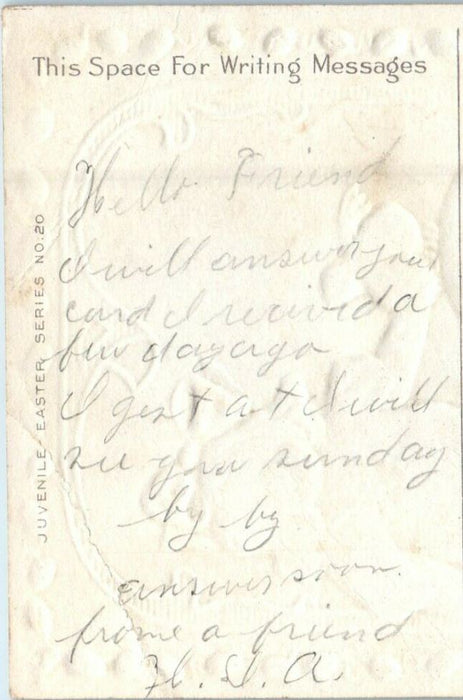 This Space For Writing Messages
JUVENILE EASTER SERIES NO. 20
Hello Friend
I will answer your
card I recived a
few days ago
I gest at I will
see you sunday
by by
answer soon.
frome a friend
H. I. A.